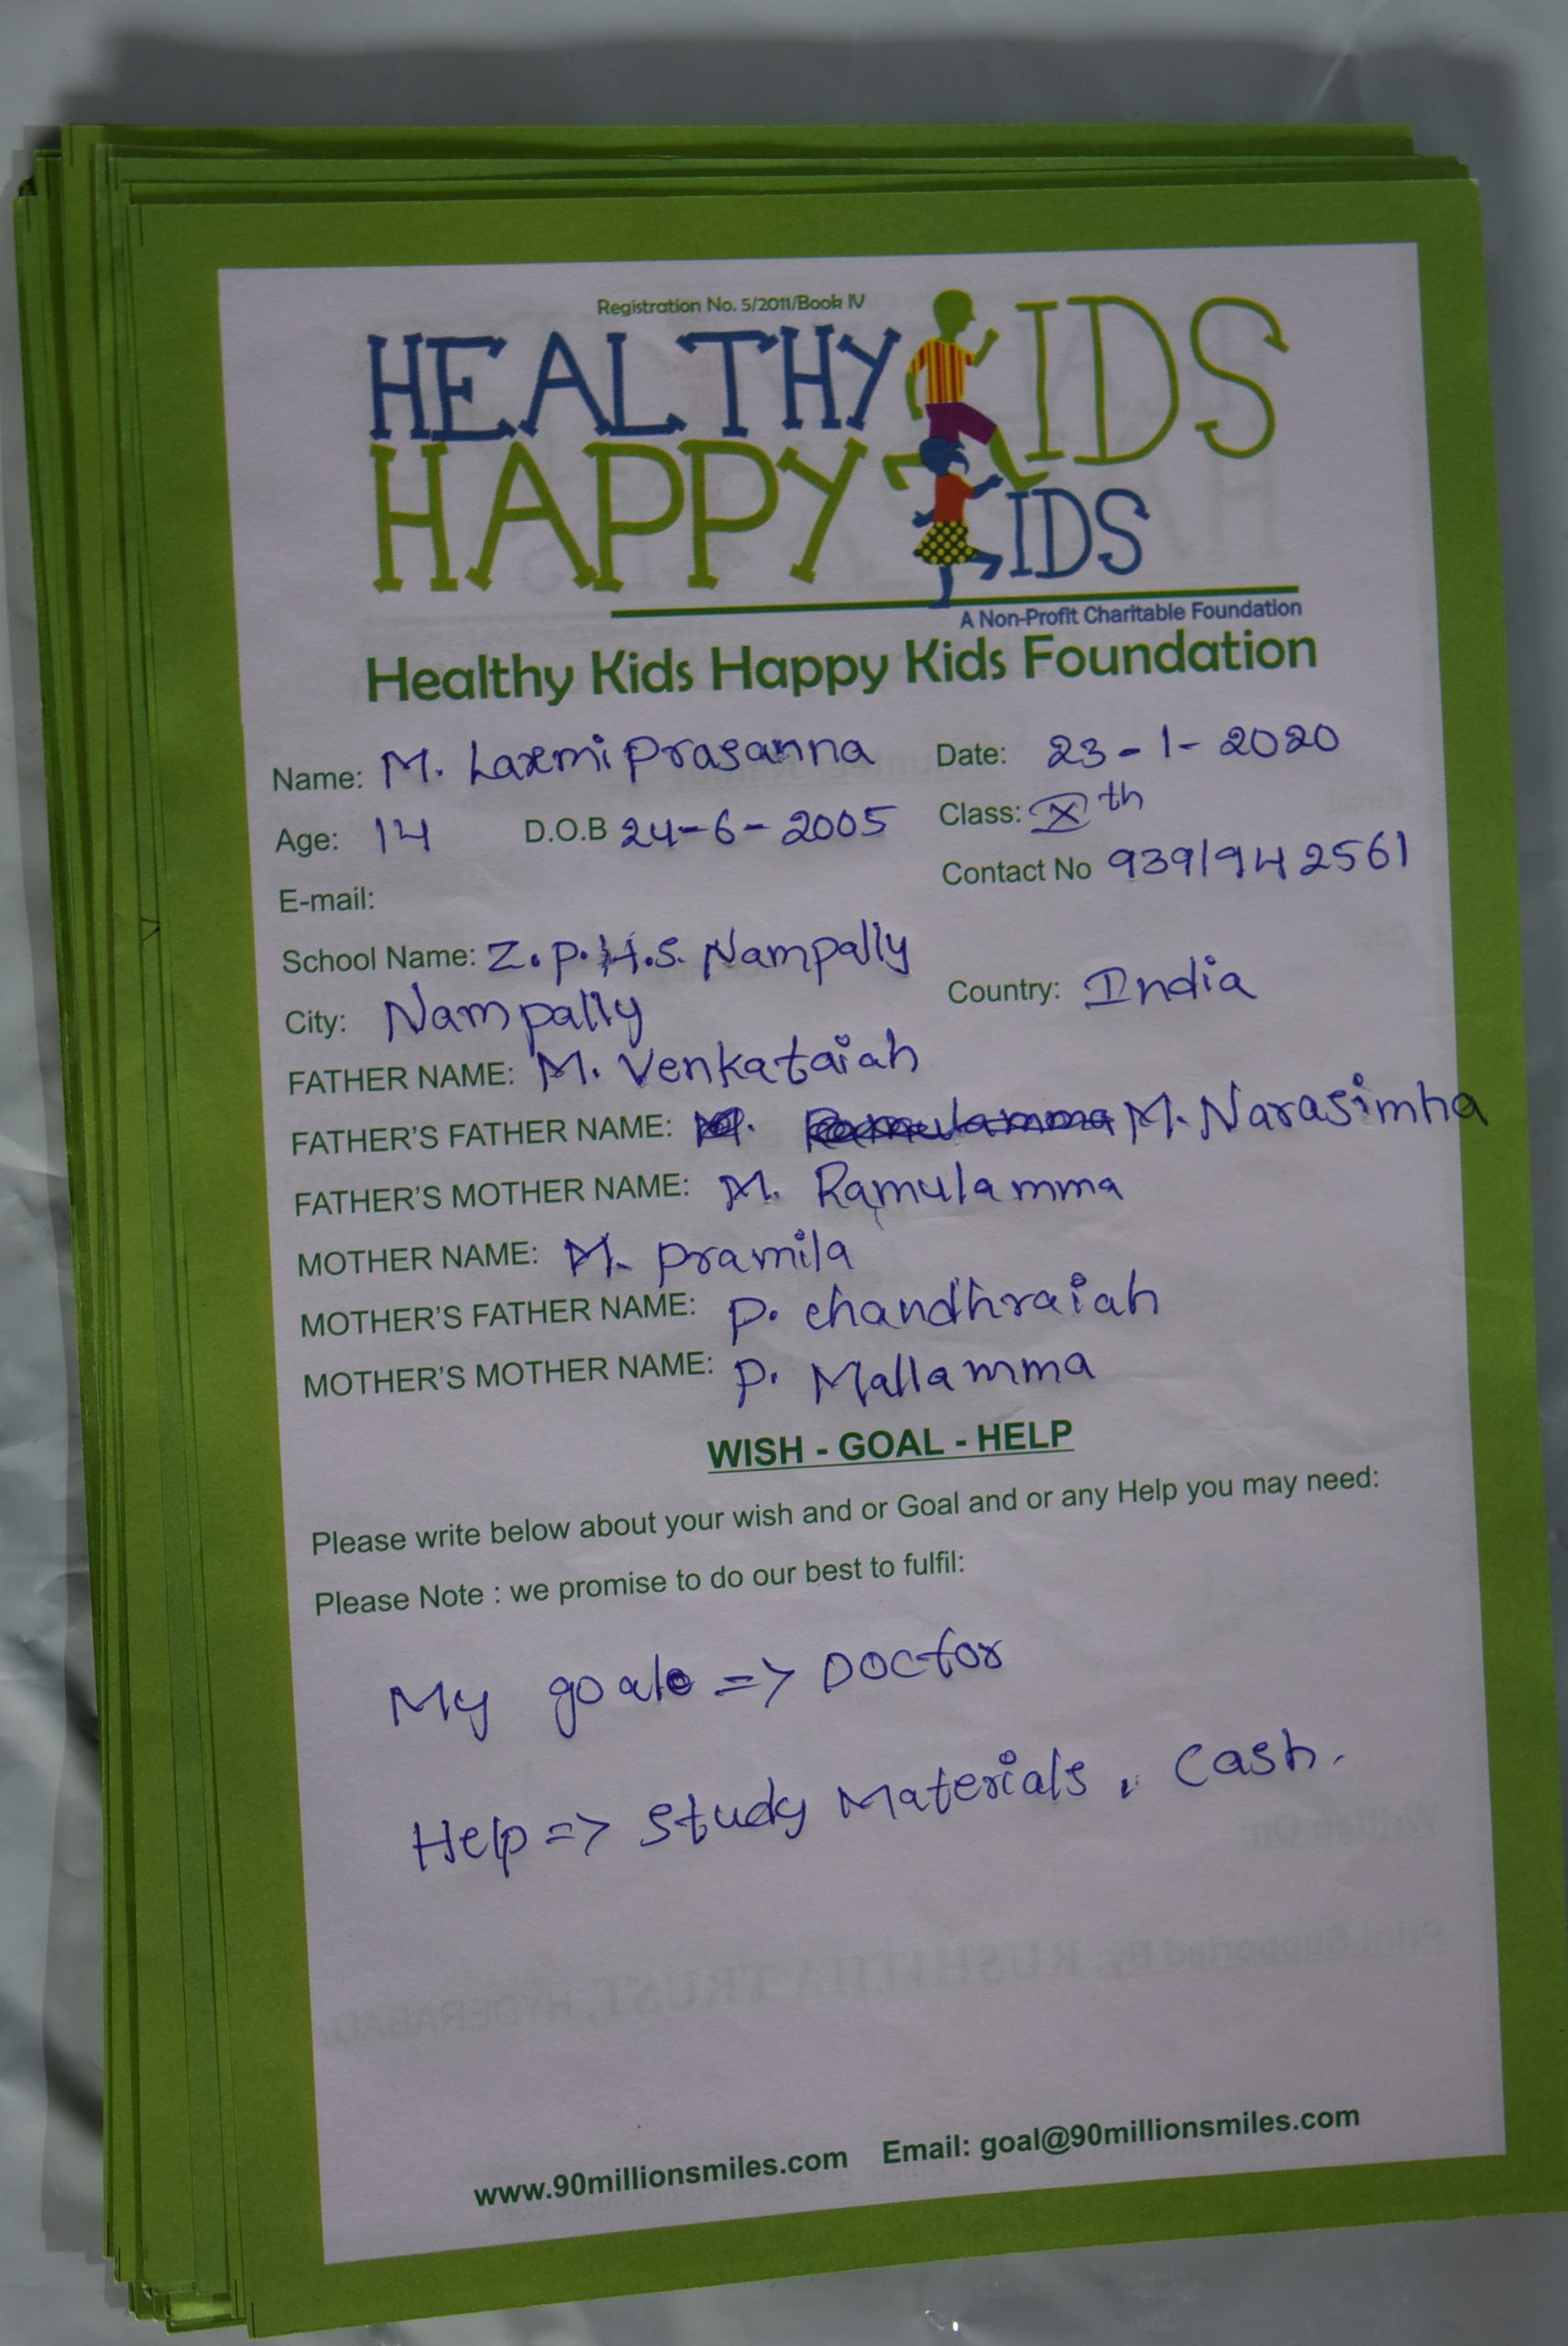 Registration No. 5/2011/Book IV
HEALTHY KIDS
HAPPY KIDS
A Non-Profit Charitable Foundation
Healthy Kids Happy Kids Foundation
Name: M. Laxmi Prasanna Date: 23-1-2020
Age: 14 D.O.B 24-6-2005 Class: Xth
E-mail: Contact No 9391942561
School Name: Z.P.H.S. Nampally
City: Nampally Country: India
FATHER NAME: M. Venkataiah
FATHER'S FATHER NAME: M. Ramulamma M. Narasimha
FATHER'S MOTHER NAME: M. Ramulamma
MOTHER NAME: M. Pramila
MOTHER'S FATHER NAME: P. chandhraiah
MOTHER'S MOTHER NAME: P. Mallamma
WISH - GOAL - HELP
Please write below about your wish and or Goal and or any Help you may need:
Please Note : we promise to do our best to fulfil:
My goal => Doctor
Help => Study Materials, Cash.
www.90millionsmiles.com Email: goal@90millionsmiles.com